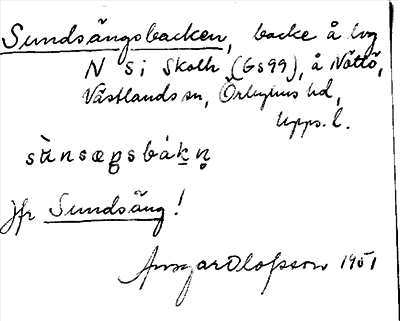 Sundsängsbacken, backe å lvg
N si Skolh (Gs99), å Nöttö,
Västlands sn, Örbyhus hd,
Upps. l.
Jfr Sundsäng!
Ansgar Olofsson 1951